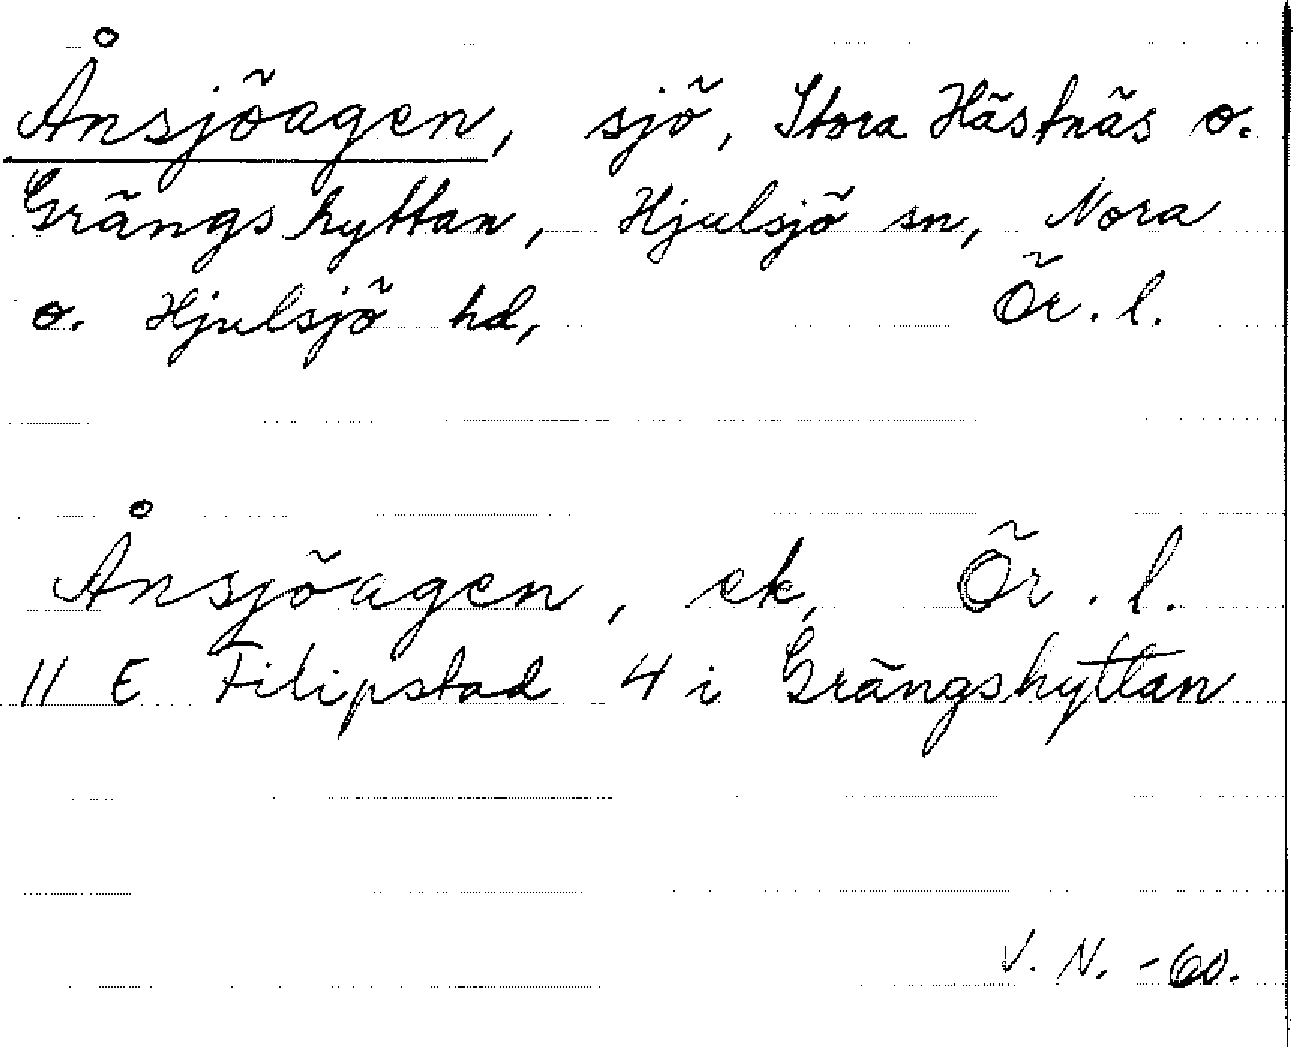 Ånsjöagen, sjö, Stora Hästnäs o.
Grängshyttan, Hjulsjö sn, Nora
o. Hjulsjö hd, Ör. l.
Ånsjöagen, ek, Ör. l.
11 E Filipstad 4 i Grängshyttan
V. N. -60.